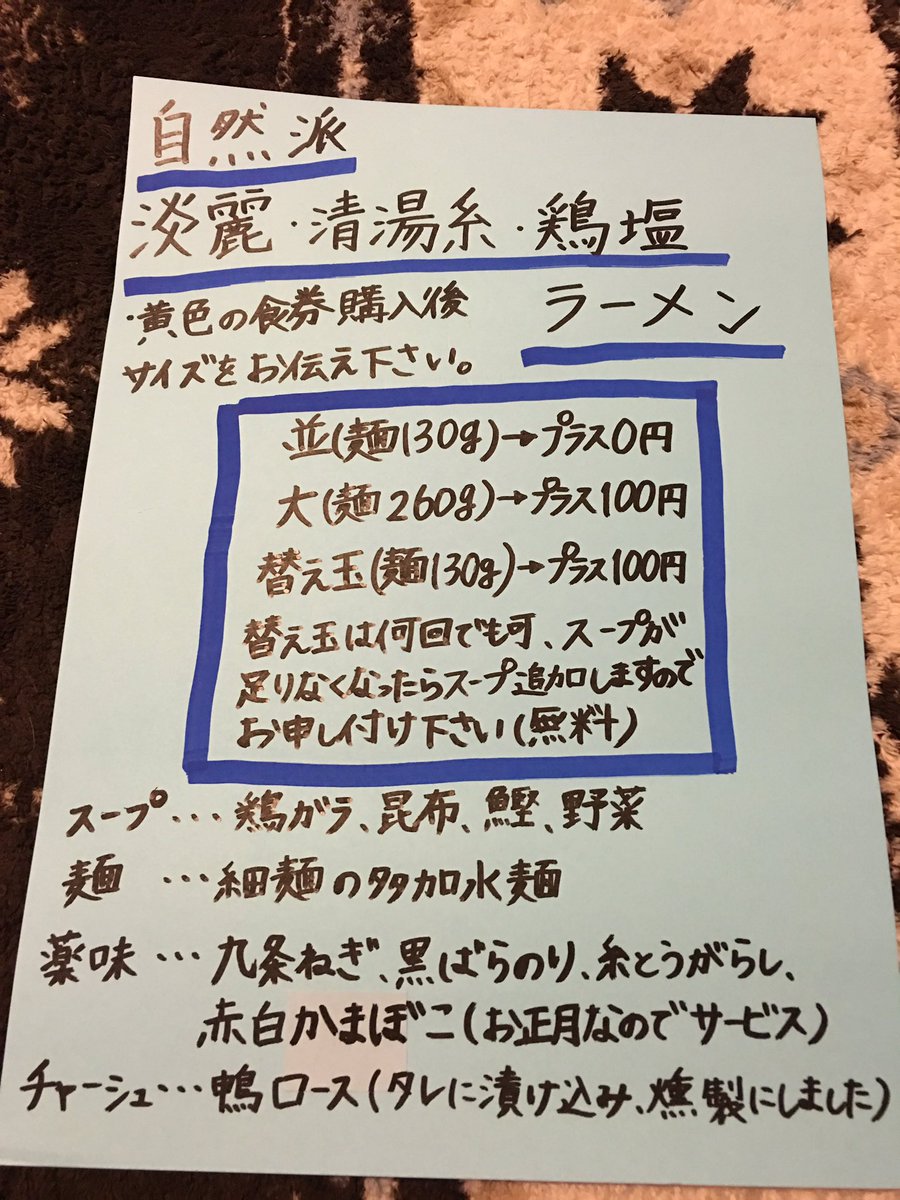 自然派
淡麗・清湯糸・鶏塩
ラーメン
・黄色の食券購入後
サイズをお伝え下さい。
並(麺130g)→プラス0円
大(麺260g)→プラス100円
替え玉(麺130g)→プラス100円
替え玉は何回でも可、スープが
足りなくなったらスープ追加しますので
お申し付け下さい(無料)
スープ…鶏ガラ、昆布、鰹、野菜
麺…細麺の多加水麺
薬味…九条ねぎ、黒ばらのり、糸とうがらし、
赤白かまぼこ(お正月なのでサービス)
チャーシュ…鴨ロース(タレに漬け込み、燻製にしました)